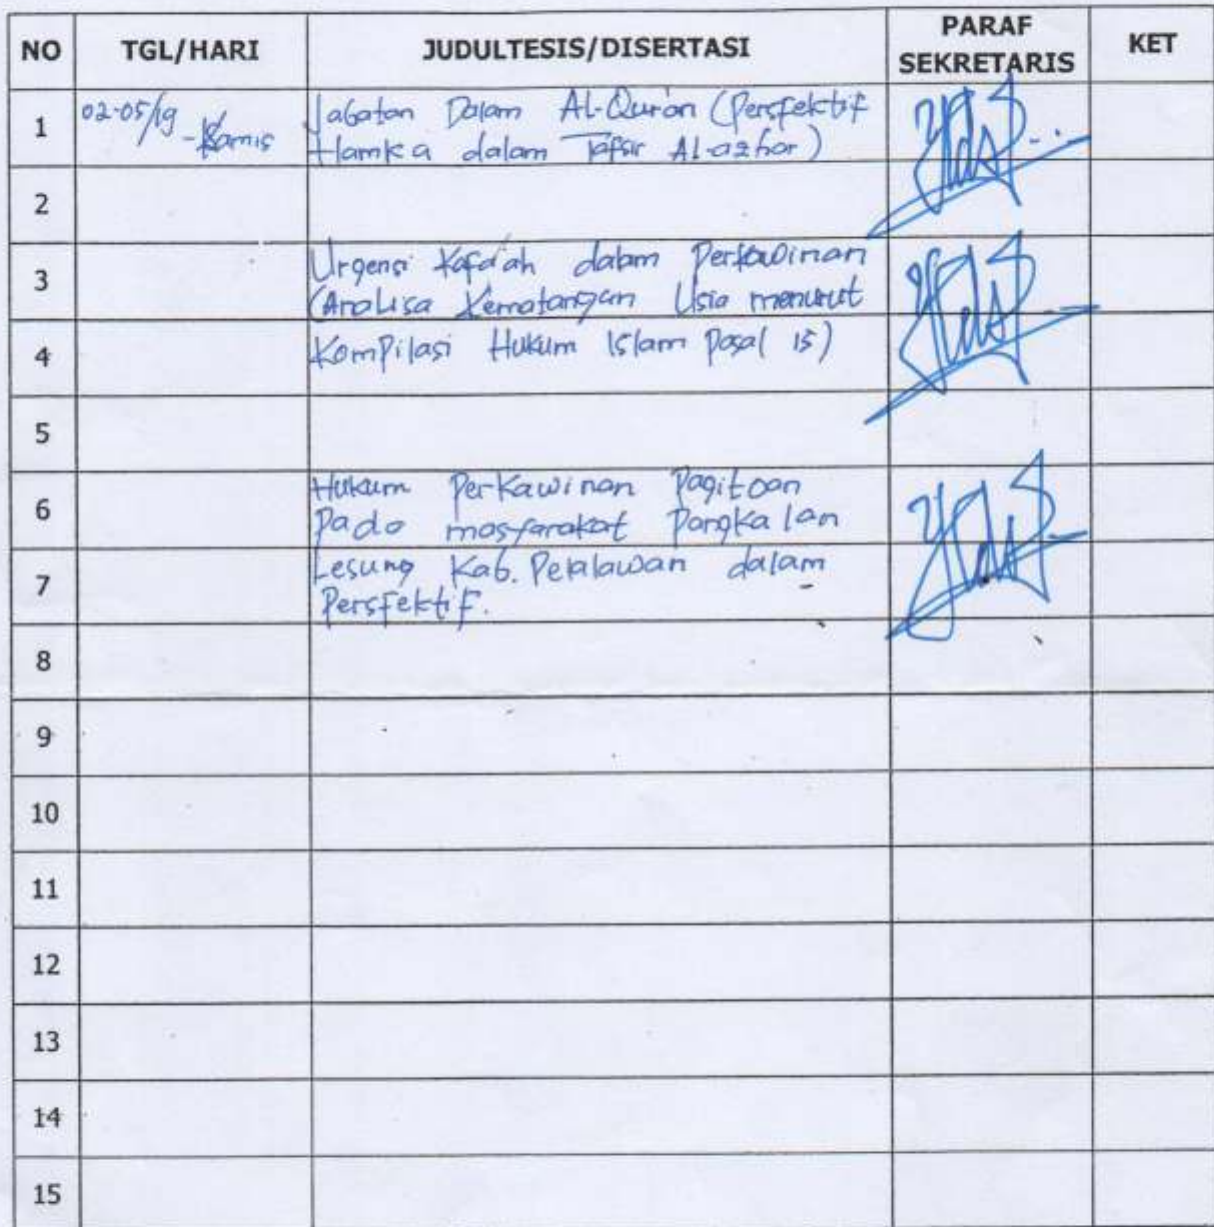 NO TGL/HARI JUDULTESIS/DISERTASI PARAF SEKRETARIS KET
1 02-05/19 -Kamis Jabatan Dalam Al-Qur'an (Persfektif
Hamka dalam Tafsir Al-azhar)
2
3 Urgensi Kafa'ah dalam Perkawinan
(Analisa Kematangan Usia menurut
4 Kompilasi Hukum Islam pasal 15)
5
6 Hukum Perkawinan Pagitoan
Pada masyarakat Pangkalan
7 Lesung Kab. Pelalawan dalam
Persfektif.
8
9
10
11
12
13
14
15